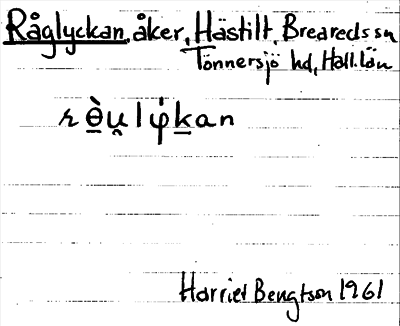 Råglyckan, åker, Hästilt, Breareds sn
Tönnersjö hd, Hall. län
rè̱u̯lφ̇ḵan
Harriet Bengtson 1961